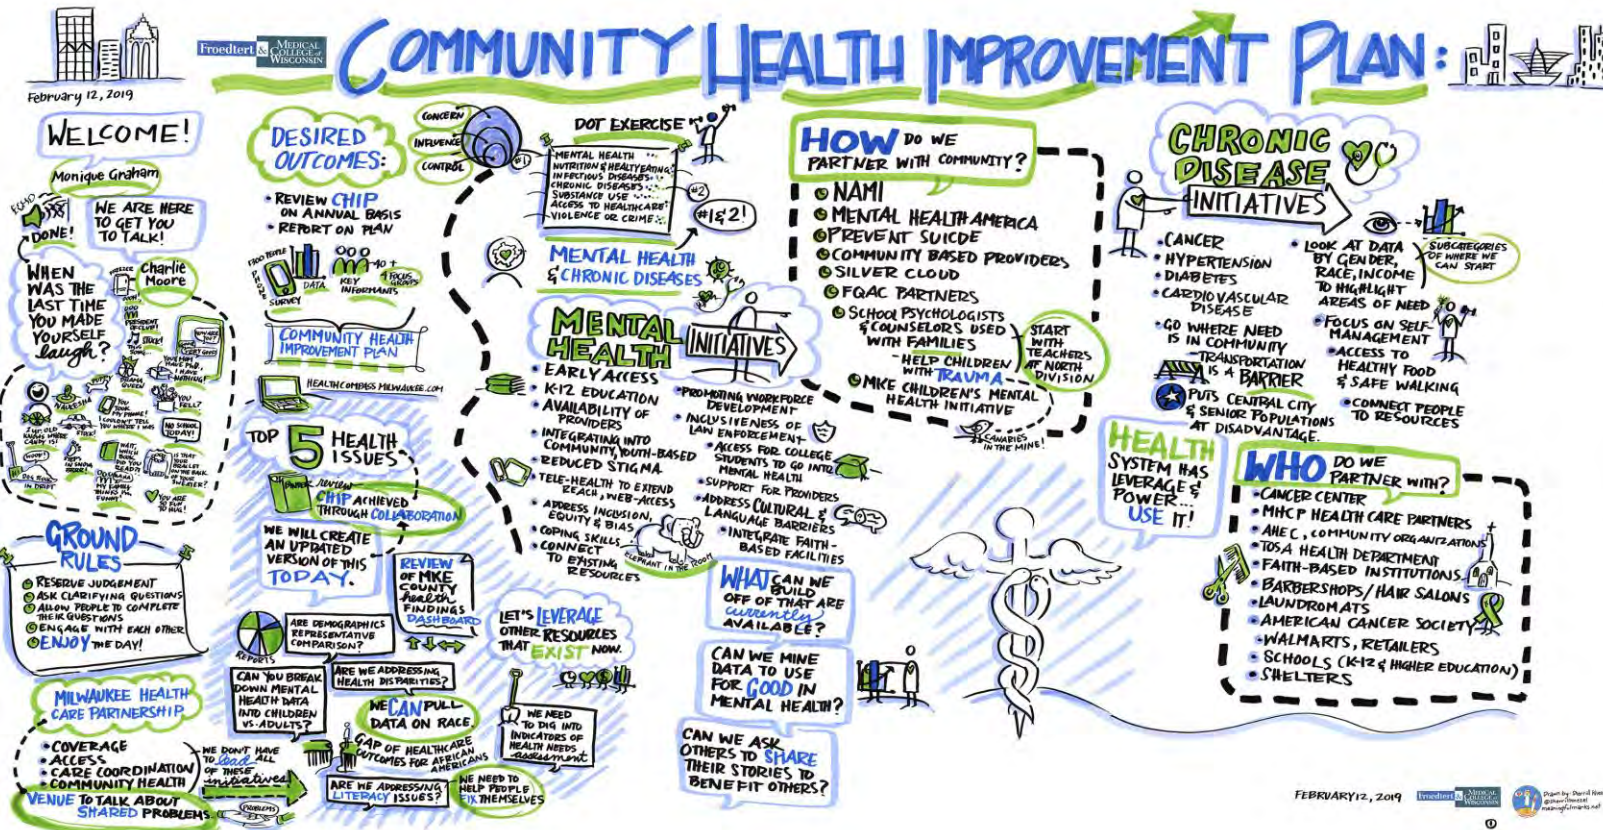 Froedtert & MEDICAL
COLLEGE of
WISCONSIN
COMMUNITY HEALTH IMPROVEMENT PLAN:
February 12, 2019
WELCOME!
Monique Graham
DONE!
WE ARE HERE
TO GET YOU
TO TALK!
WHEN
WAS THE
LAST TIME
YOU MADE
YOURSELF
laugh?
Charlie
Moore
STUCK!
DRAMA
QUEEN!
WAUKESHA
YOU
TOOK
MY PHONE!
YOU
FELL?
NO SCHOOL
TODAY!
I COULDN'T TELL
YOU WHERE I WAS
MY FAMILY
THINKS I'M
FUNNY!
IS THAT
YOUR
BRALLET
ON THE BACK
OF YOUR
SWEATER?
YOU ARE
SO FUN
TO HUG!
GROUND
RULES
RESERVE JUDGEMENT
ASK CLARIFYING QUESTIONS
ALLOW PEOPLE TO COMPLETE
THEIR QUESTIONS
ENGAGE WITH EACH OTHER
ENJOY THE DAY!
MILWAUKEE HEALTH
CARE PARTNERSHIP
• COVERAGE
• ACCESS
• CARE COORDINATION
• COMMUNITY HEALTH
WE DON'T HAVE
TO lead ALL
OF THESE
initiatives
VENUE TO TALK ABOUT
SHARED PROBLEMS.
PROBLEMS
DESIRED
OUTCOMES:
• REVIEW CHIP
ON ANNUAL BASIS
• REPORT ON PLAN
PHONE
SURVEY
DATA
40+
KEY
INFORMANTS
4 FOCUS
GROUPS
COMMUNITY HEALTH
IMPROVEMENT PLAN
HEALTHCOMPASS MILWAUKEE.COM
TOP 5 HEALTH
ISSUES
review
CHIP ACHIEVED
THROUGH COLLABORATION
WE WILL CREATE
AN UPDATED
VERSION OF THIS
TODAY.
REVIEW
OF MKE
COUNTY
health
FINDINGS
DASHBOARD
REPORTS
ARE DEMOGRAPHICS
REPRESENTATIVE
COMPARISON?
CAN YOU BREAK
DOWN MENTAL
HEALTH DATA
INTO CHILDREN
VS. ADULTS?
ARE WE ADDRESSING
HEALTH DISPARITIES?
WE CAN PULL
DATA ON RACE.
GAP OF HEALTHCARE
OUTCOMES FOR AFRICAN
AMERICANS
ARE WE ADDRESSING
LITERACY ISSUES?
WE NEED TO
HELP PEOPLE
FIX THEMSELVES
CONCERN
INFLUENCE
CONTROL
DOT EXERCISE
#1
MENTAL HEALTH
NUTRITION & HEALTY EATING
INFECTIOUS DISEASES
CHRONIC DISEASES
SUBSTANCE USE
ACCESS TO HEALTHCARE
VIOLENCE OR CRIME
#2
#1 & 2!
MENTAL HEALTH
& CHRONIC DISEASES
MENTAL
HEALTH
INITIATIVES
• EARLY ACCESS
• K-12 EDUCATION
• AVAILABILITY OF
PROVIDERS
• INTEGRATING INTO
COMMUNITY, YOUTH-BASED
• REDUCED STIGMA
• TELE-HEALTH TO EXTEND
REACH, WEB-ACCESS
• ADDRESS INCLUSION,
EQUITY & BIAS
• COPING SKILLS
• CONNECT
TO EXISTING
RESOURCES
ELEPHANT IN THE ROOM
• PROMOTING WORKFORCE
DEVELOPMENT
• INCLUSIVENESS OF
LAW ENFORCEMENT
• ACCESS FOR COLLEGE
STUDENTS TO GO INTO
MENTAL HEALTH
• SUPPORT FOR PROVIDERS
• ADDRESS CULTURAL &
LANGUAGE BARRIERS
• INTEGRATE FAITH-
BASED FACILITIES
LET'S LEVERAGE
OTHER RESOURCES
THAT EXIST NOW.
WE NEED
TO DIG INTO
INDICATORS OF
HEALTH NEEDS
assessment
WHAT CAN WE
BUILD
OFF OF THAT ARE
currently
AVAILABLE?
CAN WE MINE
DATA TO USE
FOR GOOD IN
MENTAL HEALTH?
CAN WE ASK
OTHERS TO SHARE
THEIR STORIES TO
BENEFIT OTHERS?
HOW DO WE
PARTNER WITH COMMUNITY?
NAMI
MENTAL HEALTH AMERICA
PREVENT SUICDE
COMMUNITY BASED PROVIDERS
SILVER CLOUD
FQAC PARTNERS
SCHOOL PSYCHOLOGISTS
& COUNSELORS USED
WITH FAMILIES
- HELP CHILDREN
WITH TRAUMA
MKE CHILDREN'S MENTAL
HEALTH INITIATIVE
START
WITH
TEACHERS
AT NORTH
DIVISION
CANARIES
IN THE MINE!
CHRONIC
DISEASE
INITIATIVES
• CANCER
• HYPERTENSION
• DIABETES
• CARDIOVASCULAR
DISEASE
• GO WHERE NEED
IS IN COMMUNITY
- TRANSPORTATION
IS A BARRIER
PUTS CENTRAL CITY
& SENIOR POPULATIONS
AT DISADVANTAGE.
• LOOK AT DATA
BY GENDER,
RACE, INCOME
TO HIGHLIGHT
AREAS OF NEED
SUBCATEGORIES
OF WHERE WE
CAN START
• FOCUS ON SELF-
MANAGEMENT
• ACCESS TO
HEALTHY FOOD
& SAFE WALKING
• CONNECT PEOPLE
TO RESOURCES
HEALTH
SYSTEM HAS
LEVERAGE &
POWER...
USE IT!
WHO DO WE
PARTNER WITH?
• CANCER CENTER
• MHCP HEALTH CARE PARTNERS
• AHEC, COMMUNITY ORGANIZATIONS
• TOSA HEALTH DEPARTMENT
• FAITH-BASED INSTITUTIONS
• BARBERSHOPS/HAIR SALONS
• LAUNDROMATS
• AMERICAN CANCER SOCIETY
• WALMARTS, RETAILERS
• SCHOOLS (K-12 & HIGHER EDUCATION)
• SHELTERS
FEBRUARY 12, 2019
Froedtert & MEDICAL
COLLEGE of
WISCONSIN
meaningfulmarks.net